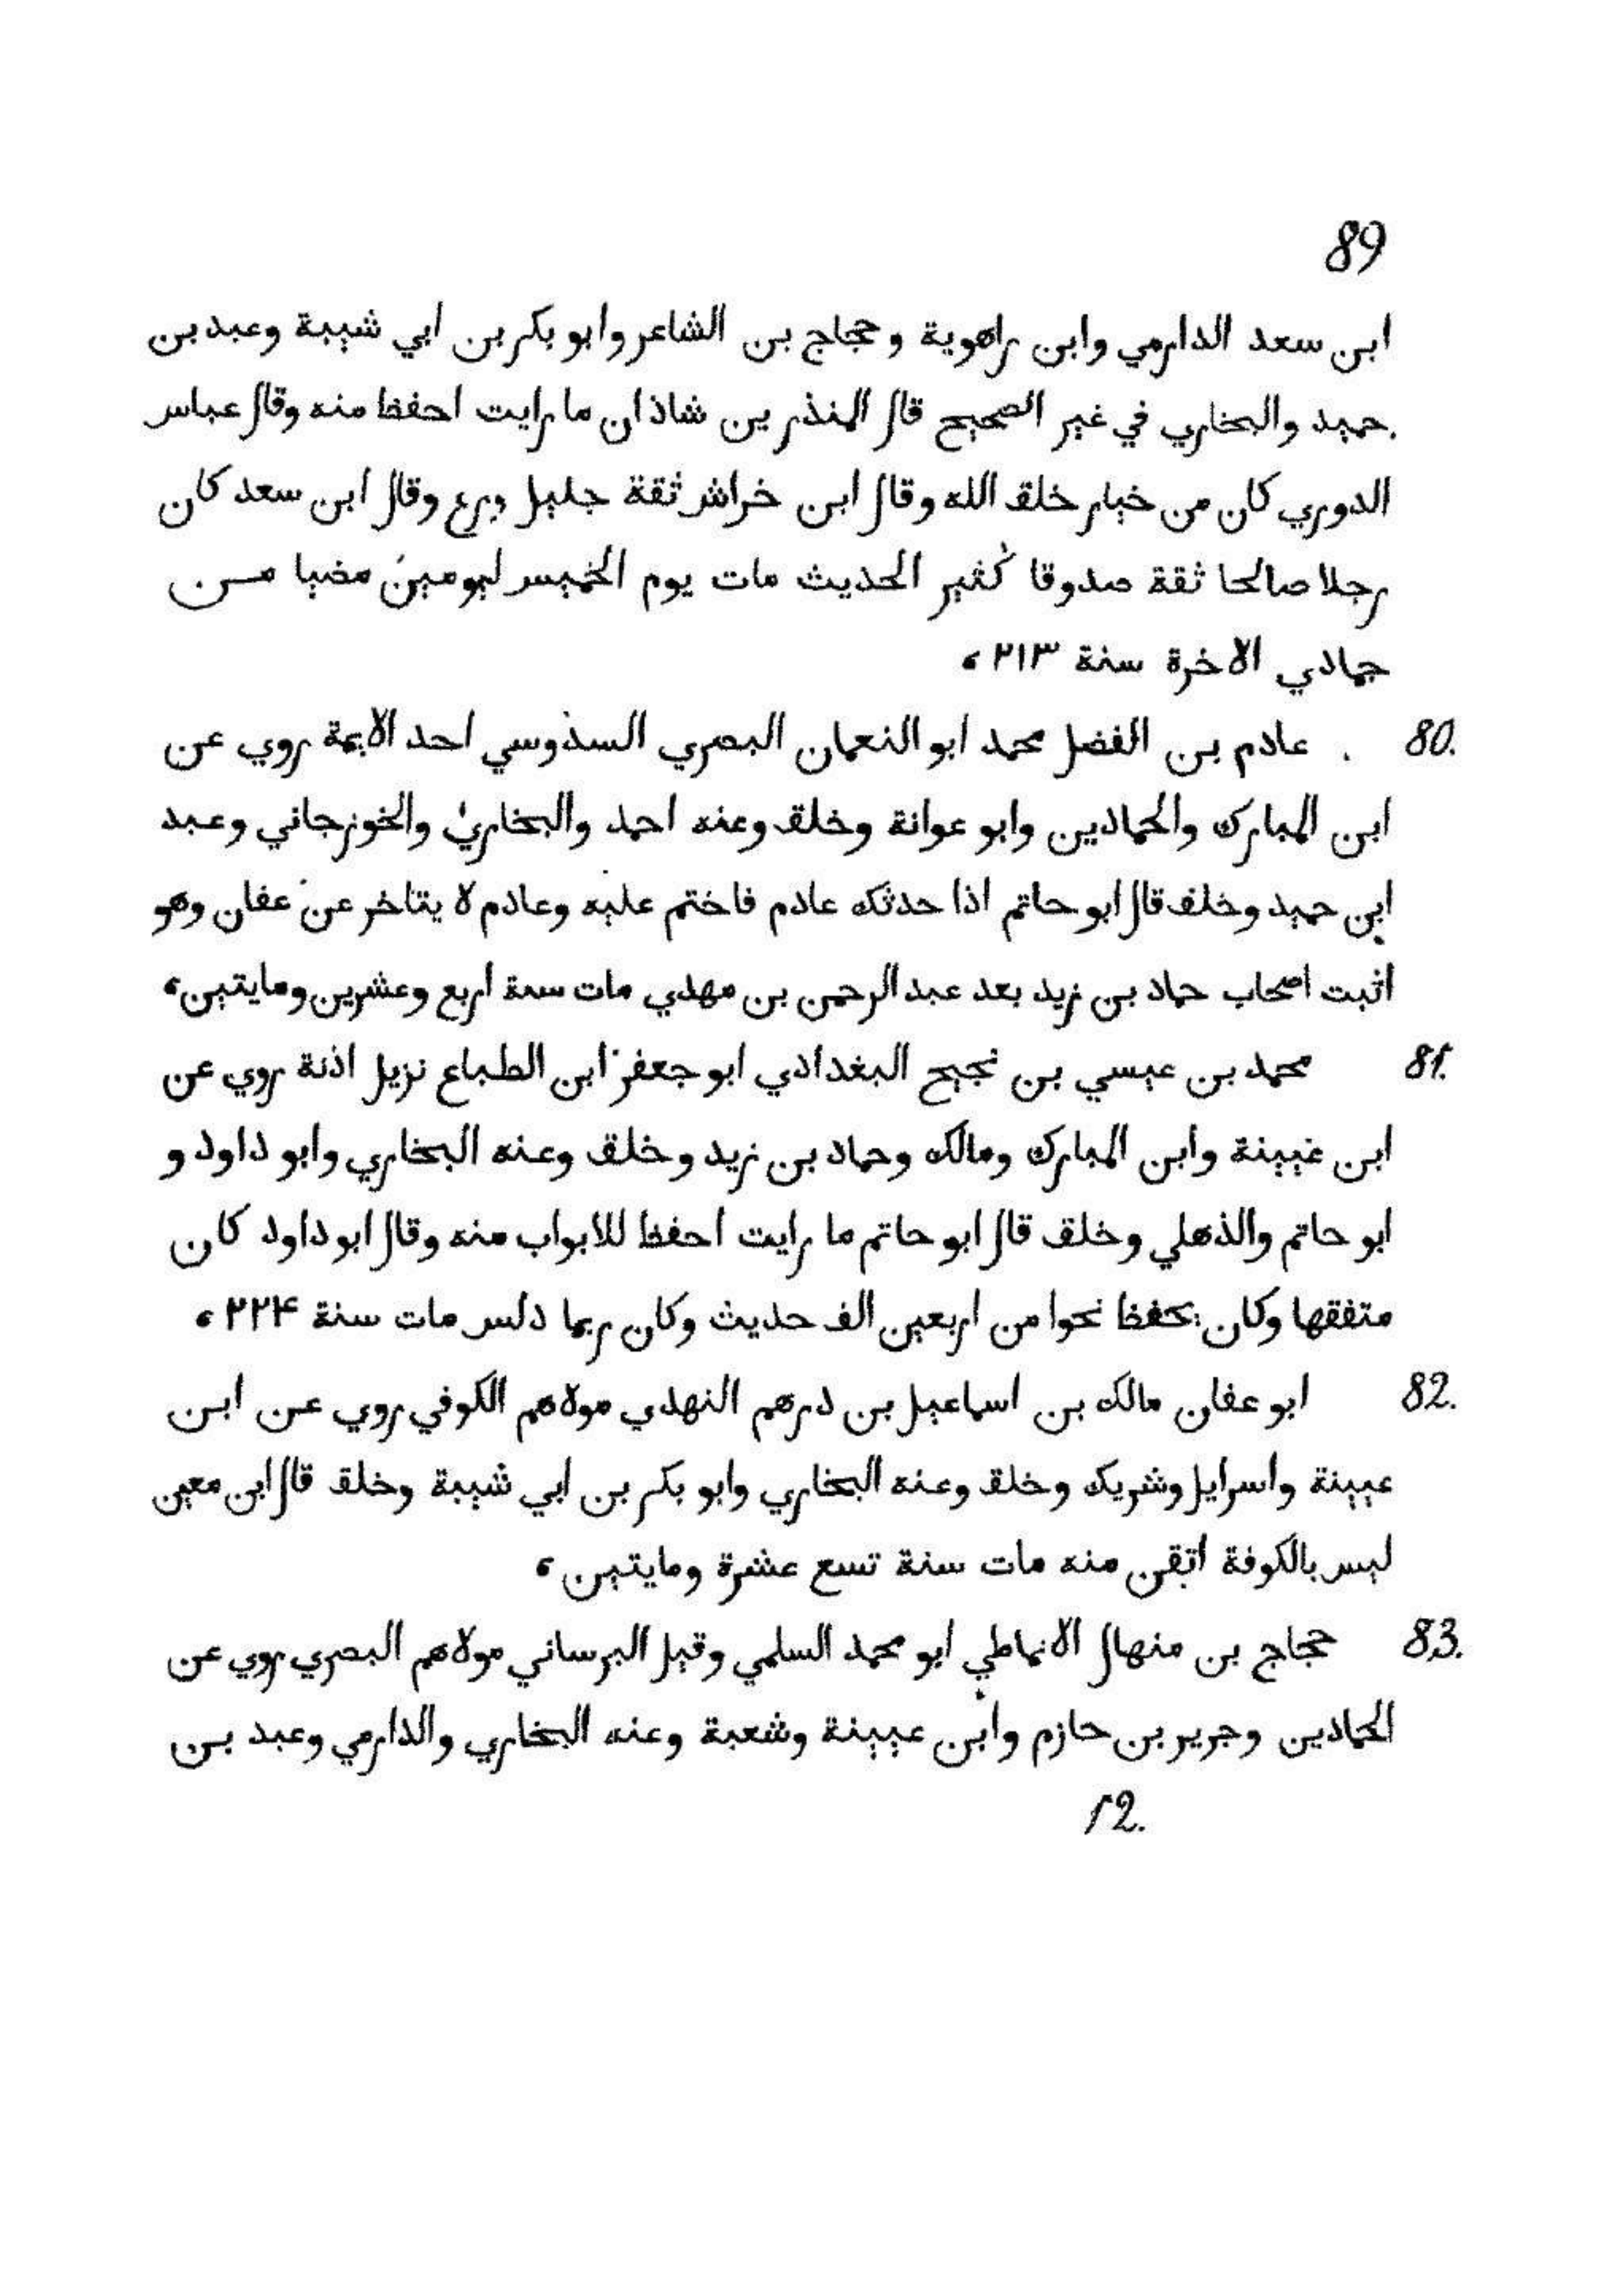 89
ابن سعد الدارمي وابن راهوية و حجاج بن الشاعر وابو بكر بن ابي شيبة وعبد بن
حميد والبخاري في غير الصحيح قال المنذر بن شاذان ما رايت احفظ منه وقال عباس
الدوري كان من خيار خلق الله وقال ابن خراش ثقة جليل ورع وقال ابن سعد كان
رجلا صالحا ثقة صدوقا كثير الحديث مات يوم الخميس ليومين مضيا من
جمادي الاخرة سنة ٢١٣ ،
80. عادم بن الفضل محمد ابو النعمان البصري السذوسي احد الايمة روي عن
ابن المبارك والحمادين وابو عوانة وخلق وعنه احمد والبخاري والخوزجاني وعبد
ابن حميد وخلف قال ابو حاتم اذا حدثك عادم فاختم عليه وعادم لا يتاخر عن عفان وهو
اثبت اصحاب حماد بن زيد بعد عبد الرحمن بن مهدي مات سنة اربع وعشرين ومايتين ،
81. محمد بن عيسي بن نجيح البغدادي ابو جعفر ابن الطباع نزيل اذنة روي عن
ابن غيينة وابن المبارك ومالك وحماد بن زيد وخلق وعنه البخاري وابو داود و
ابو حاتم والذهلي وخلق قال ابو حاتم ما رايت احفظ للابواب منه وقال ابو داود كان
متفقها وكان يحفظ نحوا من اربعين الف حديث وكان ربما دلس مات سنة ٢٢۴ ،
82. ابو عفان مالك بن اسماعيل بن درهم النهدي مولاهم الكوفي روي عن ابن
عيينة واسرايل وشريك وخلق وعنه البخاري وابو بكر بن ابي شيبة وخلق قال ابن معين
ليس بالكوفة اتقن منه مات سنة تسع عشرة ومايتين ،
83. حجاج بن منهال الانماطي ابو محمد السلمي وقيل البرساني مولاهم البصري روي عن
الحمادين وجرير بن حازم وابن عيينة وشعبة وعنه البخاري والدارمي وعبد بن
12.